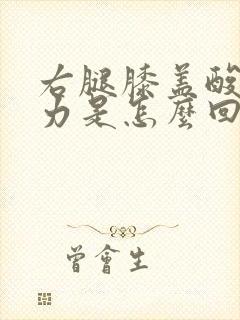 右腿膝盖酸
力是怎麼回
曾會生